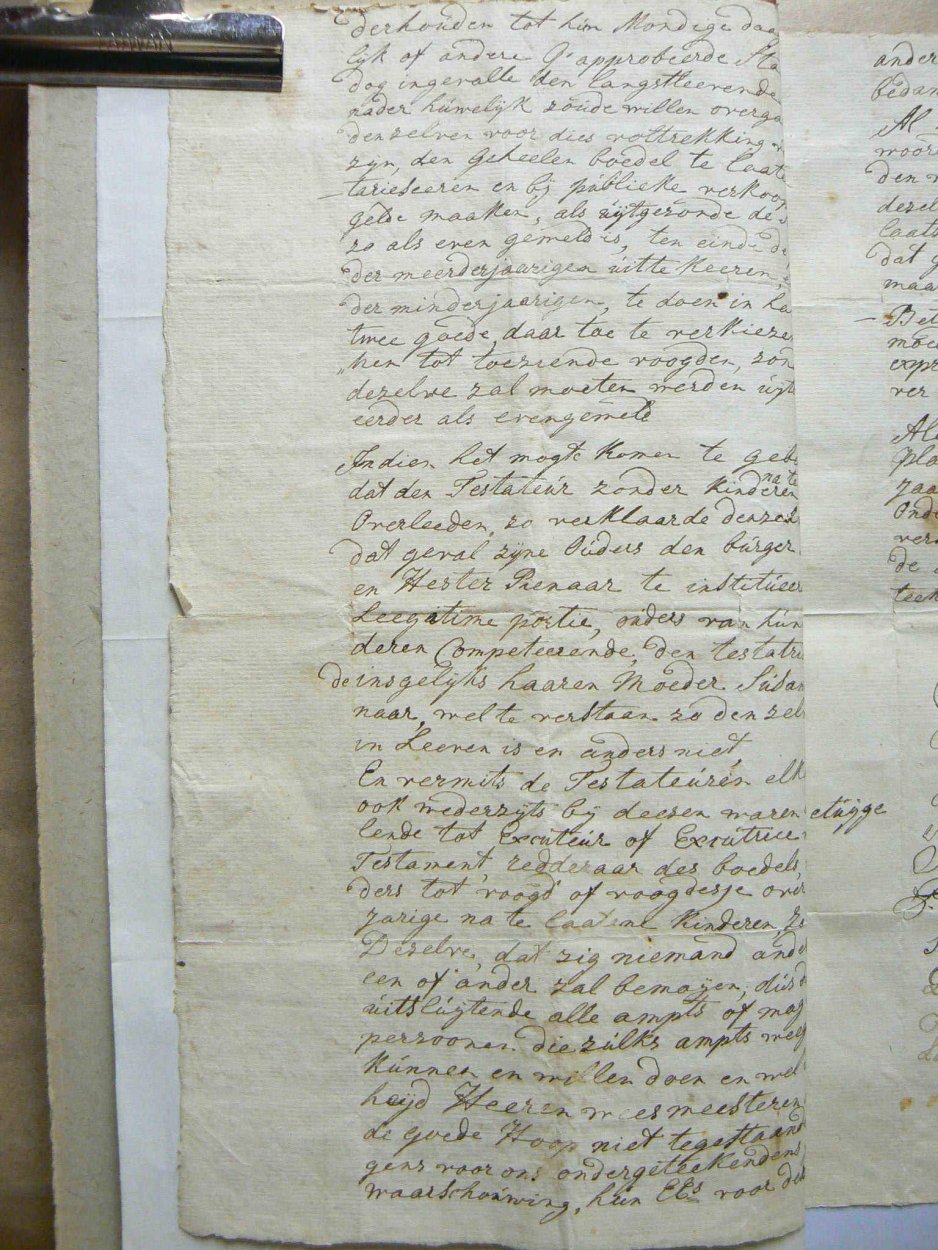 derhouden tot hún Mondige dag
lijk of andere G'approbeerde Sta
dog ingevalle den langstleevende
nader húwelijk zoúde willen overga
denzelven voor dies vottrekking v
zijn, den Geheelen boedel te laate
tarieseeren en bij públieke verkoop
gelde maaken, als úijtgezonde de
zo als even gemeld is, ten einde de
der meerderjaarigen úit te keeren,
der minderjaarigen, te doen in ha
twee goede, daar toe te verkieze
hen tot toeziende voogden, zon
dezelve zal moeten werden úijt
eerder als evengemeld
Indien het mogte komen te geb
dat den Testateúr zonder kinderen na te
Overleeden, zo verklaarde denzel
dat geval zijne Oúders den búrger
en Hester Pienaar te institúeer
Leegatime portie, oúders van hún
deren Competeerende, den testatri
de insgelijks haaren Moeder Súsan
naar, wel te verstaan zo den zel
in Leeven is en anders niet,
En vermits de Testateúren elk
ook wederzijts bij deesen waren
lende tot Excúteúr of Excútrice
Testament, redderaar des boedels,
ders tot voogd of voogdesje over
jarige na te laatene Kinderen, Zo
Dezelve, dat zig niemand ande
een of ander zal bemoijen, dús
úitslúijtende alle ampts of mag
persoonen die zúlks ampts weeg
Kúnnen en willen doen en wel
heijd Heeren weesmeesteren
de goede Hoop niet tegestaand
gens voor ons ondergeteekendens
waarschouwing, hún Ets voor de
etúijge
ander
bedan
Al
woor
den
dezel
laats
dat g
maa
Bet
moe
expr
ver
Ale
pla
zaa
Onde
vera
de
teek